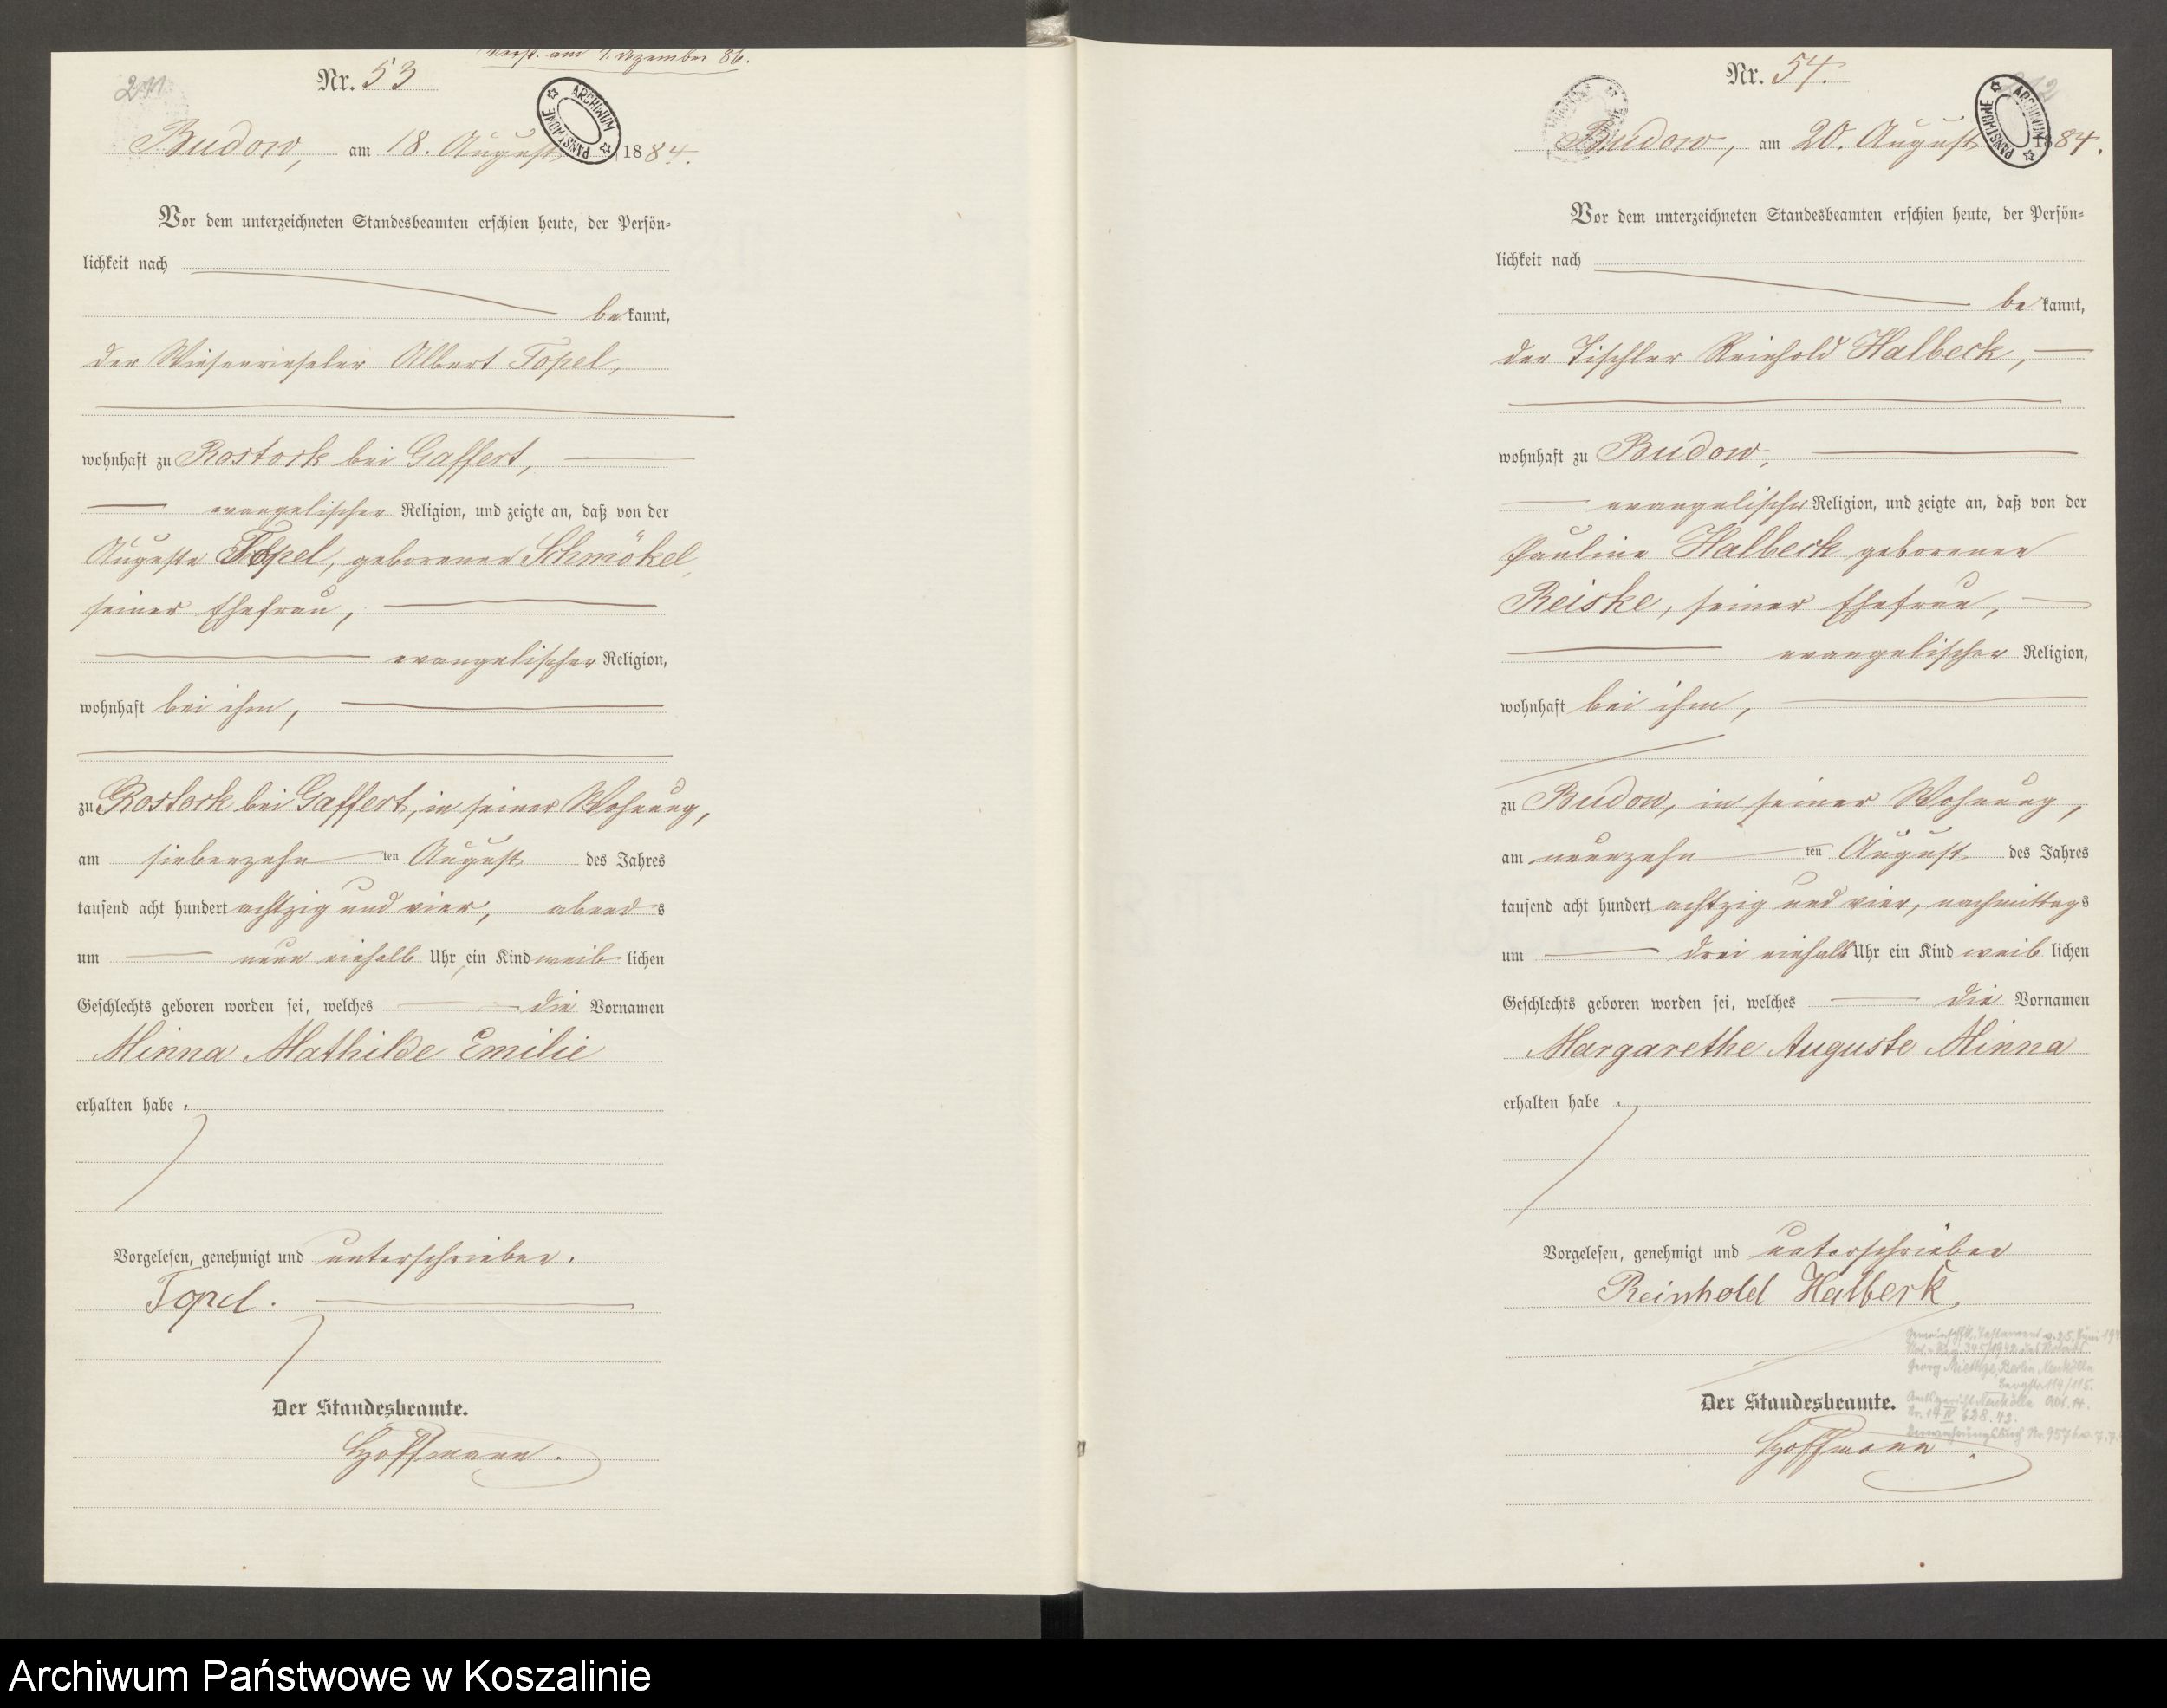 211
Nr. 53
verst. am 7. Dezember 86.
ARCHIWUM PAŃSTWOWE
Budow, am 18. August 1884.
Vor dem unterzeichneten Standesbeamten erschien heute, der Persön=
lichkeit nach
bekannt,
der Wiesenrieseler Albert Topel,
wohnhaft zu Rostock bei Gaffert,
evangelischer Religion, und zeigte an, daß von der
Auguste Topel, geborenen Schmökel,
seiner Ehefrau,
evangelischer Religion,
wohnhaft bei ihm,
zu Rostock bei Gaffert, in seiner Wohnung,
am siebenzehn ten August des Jahres
tausend acht hundert achtzig und vier, abends
um neun einhalb Uhr, ein Kind weiblichen
Geschlechts geboren worden sei, welches die Vornamen
Minna Mathilde Emilie
erhalten habe.
Vorgelesen, genehmigt und unterschrieben.
Topel.
Der Standesbeamte.
Hoffmann.
212
Nr. 54.
ARCHIWUM PAŃSTWOWE
Budow, am 20. August 1884.
Vor dem unterzeichneten Standesbeamten erschien heute, der Persön=
lichkeit nach
bekannt,
der Tischler Reinhold Halbeck,
wohnhaft zu Budow,
evangelischer Religion, und zeigte an, daß von der
Pauline Halbeck geborenen
Reiske, seiner Ehefrau,
evangelischer Religion,
wohnhaft bei ihm,
zu Budow, in seiner Wohnung,
am neunzehn ten August des Jahres
tausend acht hundert achtzig und vier, nachmittags
um drei einhalb Uhr ein Kind weiblichen
Geschlechts geboren worden sei, welches die Vornamen
Margarethe Auguste Minna
erhalten habe.
Vorgelesen, genehmigt und unterschrieben
Reinhold Halbeck.
Gemeinschftl. Testament v. 25. Juni
345/1942 des Notars
Georg Miethge, Berlin, Neukölln
114/115.
Amtsgericht Neukölln Abt. 14.
Nr. 14 IV 628. 42.
Verwahrungsbuch Nr. 9576
Der Standesbeamte.
Hoffmann.
Archiwum Państwowe w Koszalinie